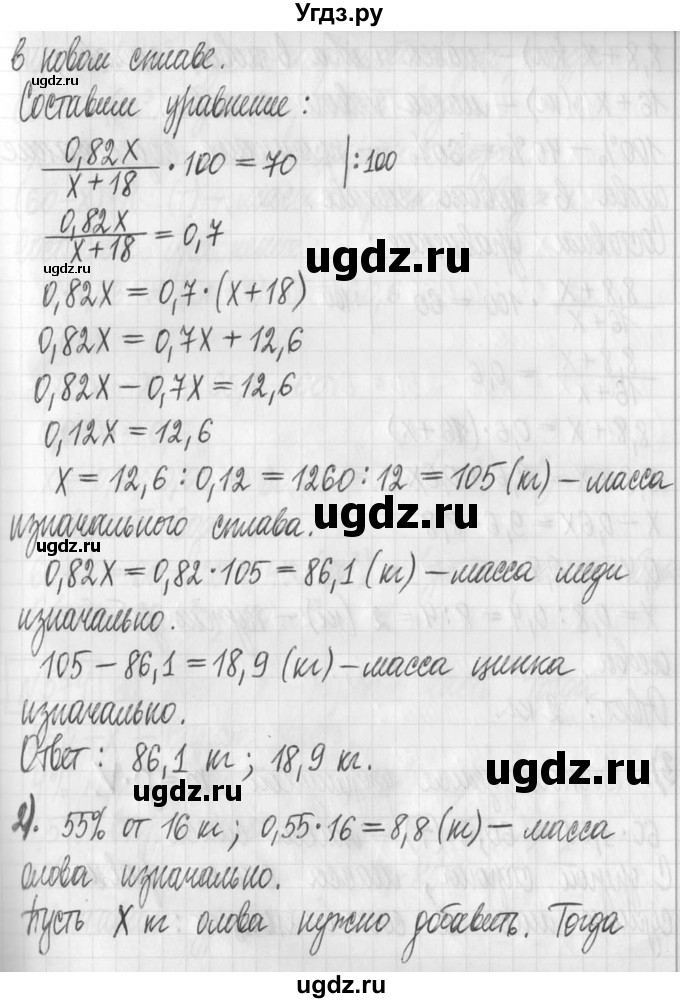 Угдз.ру
в новом сплаве.
Составим уравнение:
0,82x / x + 18 · 100 = 70 |:100
0,82x / x + 18 = 0,7
ugdz.ru
ugdz.ru
0,82x = 0,7·(x+18)
0,82x = 0,7x + 12,6
ugdz.ru
0,82x − 0,7x = 12,6
0,12x = 12,6
x = 12,6 : 0,12 = 1260 : 12 = 105 (кг) – масса
изначального сплава.
ugdz.ru
ugdz.ru
0,82x = 0,82·105 = 86,1 (кг) – масса меди
изначально.
105 − 86,1 = 18,9 (кг) – масса цинка
изначально.
Ответ: 86,1 кг; 18,9 кг.
ugdz.ru
ugdz.ru
2). 55% от 16 кг; 0,55·16 = 8,8 (кг) – масса
олова изначально.
Пусть x кг олова нужно добавить. Тогда
ugdz.ru
ugdz.ru